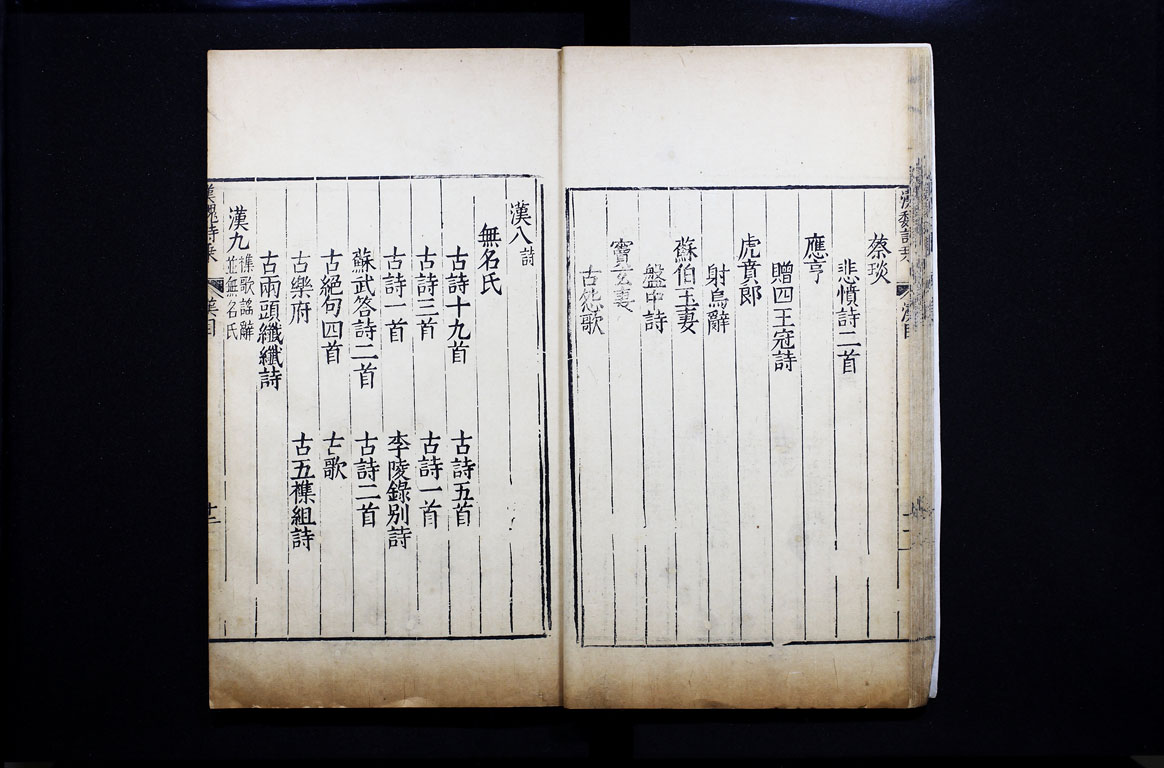 蔡琰
悲憤詩二首
應亨
贈四王冠詩
虎賁郎
射烏辭
蘇伯玉妻
盤中詩
竇玄妻
古怨歌
漢八詩
無名氏
古詩十九首 古詩五首
古詩三首 古詩一首
古詩一首 李陵錄別詩
蘇武答詩二首 古詩二首
古絕句四首 古歌
古樂府 古五雜組詩
古兩頭纖纖詩
漢九雜歌謠辭並無名氏
漢魏詩乘 漢目